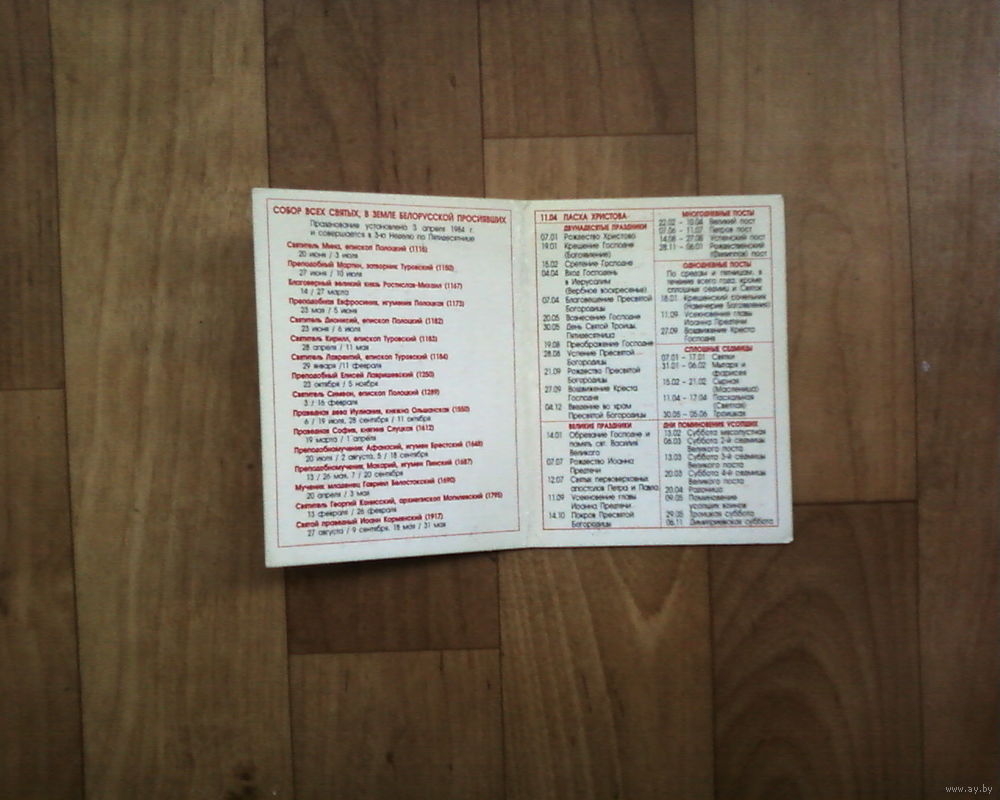 СОБОР ВСЕХ СВЯТЫХ, В ЗЕМЛЕ БЕЛОРУССКОЙ ПРОСИЯВШИХ
Празднование установлено 3 апреля 1984 г.
и совершается в 3-ю Неделю по Пятидесятнице
Святитель Мина, епископ Полоцкий (1116)
20 июня / 3 июля
Преподобный Мартин, затворник Туровский (1150)
27 июня / 10 июля
Благоверный великий князь Ростислав-Михаил (1167)
14 / 27 марта
Преподобная Евфросиния, игумения Полоцкая (1173)
23 мая / 5 июня
Святитель Дионисий, епископ Полоцкий (1182)
23 июня / 6 июля
Святитель Кирилл, епископ Туровский (1183)
28 апреля / 11 мая
Святитель Лаврентий, епископ Туровский (1184)
29 января /11 февраля
Преподобный Елисей Лавришевский (1250)
23 октября / 5 ноября
Святитель Симеон, епископ Полоцкий (1289)
3 / 16 февраля
Праведная дева Иулиания, княжна Ольшанская (1550)
6 / 19 июля, 28 сентября / 11 октября
Праведная София, княгиня Слуцкая (1612)
19 марта / 1 апреля
Преподобномученик Афанасий, игумен Брестский (1648)
20 июля / 2 августа, 5 / 18 сентября
Преподобномученик Макарий, игумен Пинский (1687)
13 / 26 мая, 7 / 20 сентября
Мученик младенец Гавриил Белостокский (1690)
20 апреля / 3 мая
Святитель Георгий Конисский, архиепископ Могилевский (1795)
13 февраля / 26 февраля
Святой праведный Иоанн Кормянский (1917)
27 августа / 9 сентября, 18 мая / 31 мая
11.04 ПАСХА ХРИСТОВА
ДВУНАДЕСЯТЫЕ ПРАЗДНИКИ
07.01 Рождество Христово
19.01 Крещение Господне
(Богоявление)
15.02 Сретение Господне
04.04 Вход Господень
в Иерусалим
(Вербное воскресение)
07.04 Благовещение Пресвятой
Богородицы
20.05 Вознесение Господне
30.05 День Святой Троицы.
Пятидесятница
19.08 Преображение Господне
28.08 Успение Пресвятой
Богородицы
21.09 Рождество Пресвятой
Богородицы
27.09 Воздвижение Креста
Господня
04.12 Введение во храм
Пресвятой Богородицы
ВЕЛИКИЕ ПРАЗДНИКИ
14.01 Обрезание Господне и
память свт. Василия
Великого
07.07 Рождество Иоанна
Предтечи
12.07 Святых первоверховных
апостолов Петра и Павла
11.09 Усекновение главы
Иоанна Предтечи
14.10 Покров Пресвятой
Богородицы
МНОГОДНЕВНЫЕ ПОСТЫ
22.02 – 10.04 Великий пост
07.06 – 11.07 Петров пост
14.08 – 27.08 Успенский пост
28.11 – 06.01 Рождественский
(Филиппов) пост
ОДНОДНЕВНЫЕ ПОСТЫ
По средам и пятницам, в
течение всего года, кроме
сплошных седмиц и Святок
18.01 Крещенский сочельник
(Навечерие Богоявления)
11.09 Усекновение главы
Иоанна Предтечи
27.09 Воздвижение Креста
Господня
СПЛОШНЫЕ СЕДМИЦЫ
07.01 – 17.01 Святки
31.01 – 06.02 Мытаря и
фарисея
15.02 – 21.02 Сырная
(Масленица)
11.04 – 17.04 Пасхальная
(Светлая)
30.05 – 05.06 Троицкая
ДНИ ПОМИНОВЕНИЯ УСОПШИХ
13.02 Суббота мясопустная
06.03 Суббота 2-й седмицы
Великого поста
13.03 Суббота 3-й седмицы
Великого поста
20.03 Суббота 4-й седмицы
Великого поста
20.04 Радоница
09.05 Поминовение
усопших воинов
29.05 Троицкая суббота
06.11 Димитриевская суббота
www.ay.by